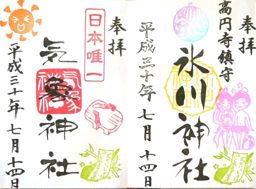 奉拝
高円寺鎮守
氷川神社
平成三十年七月十四日
奉拝
日本唯一
気象神社
平成三十年七月十四日